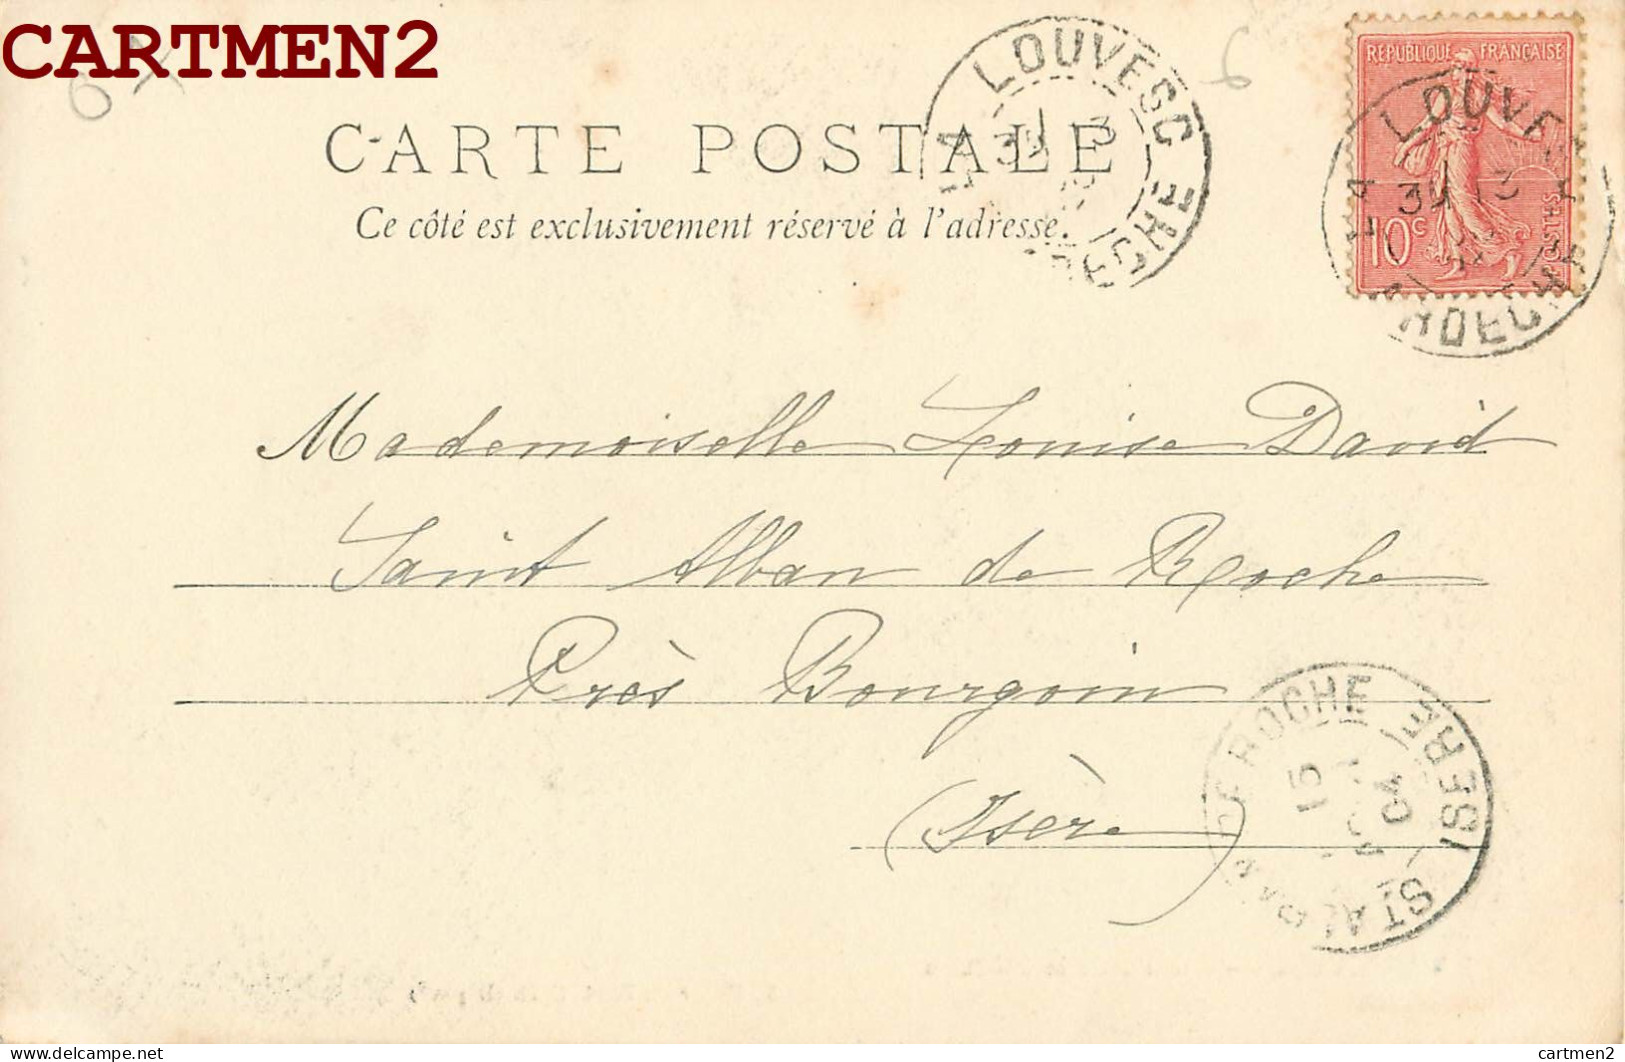 CARTMEN2
6
RÉPUBLIQUE FRANÇAISE
10c
LOUVESC
ARDECHE
LOUVESC
ARDECHE
CARTE POSTALE
Ce côté est exclusivement réservé à l'adresse.
Mademoiselle Louise David
Saint Alban de Roche
Près Bourgoin
(Isère)
ROCHE ISERE
15
04
ST ALBAN
delcampe.net
cartmen2